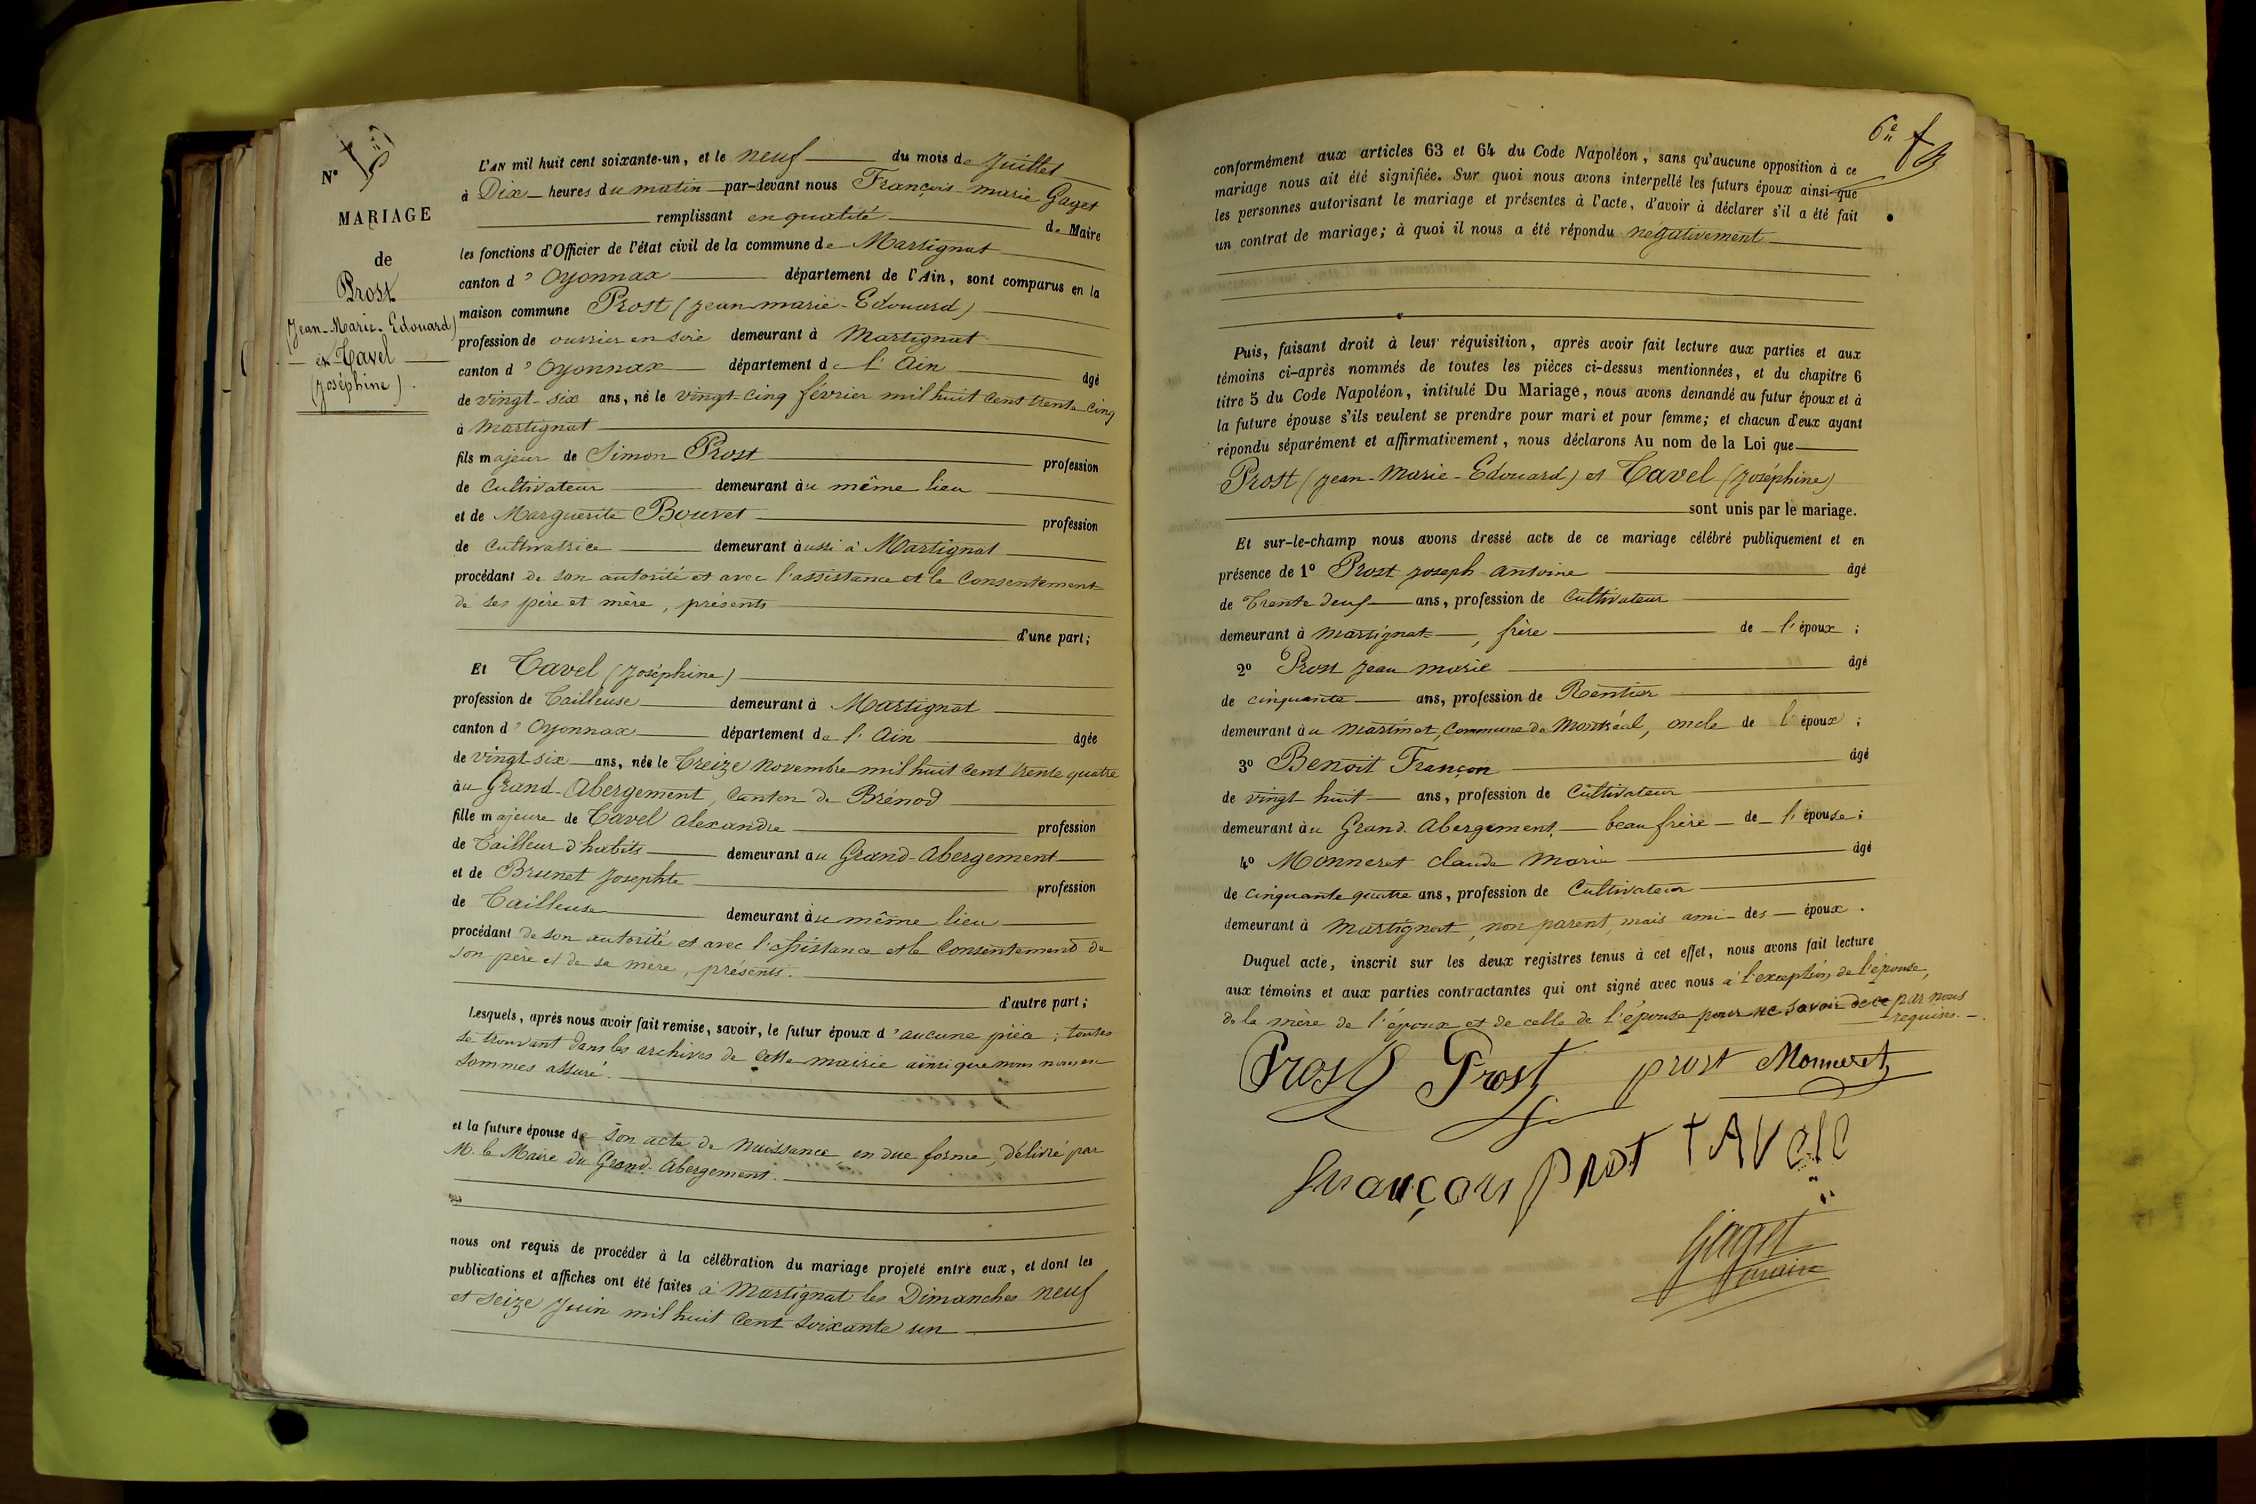 N° 5
MARIAGE
de
Prost
(Jean-Marie-Edouard)
et Tavel
(Joséphine).
L'AN mil huit cent soixante-un, et le neuf du mois de Juillet
à Dix heures du matin par-devant nous François-marie Gaget
remplissant en qualité de Maire
les fonctions d'Officier de l'état civil de la commune de Martignat
canton d'Oyonnax département de l'Ain, sont comparus en la
maison commune Prost (Jean-marie-Edouard)
profession de ouvrier en soie demeurant à Martignat
canton d'Oyonnax département de l'Ain âgé
de vingt-six ans, né le vingt-cinq février mil huit cent trente-cinq
à Martignat
fils majeur de Simon Prost profession
de Cultivateur demeurant au même lieu
et de Marguerite Bouvet profession
de Cultivatrice demeurant aussi à Martignat
procédant de son autorité et avec l'assistance et le Consentement
de ses père et mère, présents
d'une part;
Et Tavel (Joséphine)
profession de Tailleuse demeurant à Martignat
canton d'Oyonnax département de l'Ain âgée
de vingt-six ans, née le Treize Novembre mil huit cent trente quatre
au Grand-Abergement, Canton de Brénod
fille majeure de Tavel Alexandre profession
de Tailleur d'habits demeurant au Grand-Abergement
et de Brunet Josephte profession
de Tailleuse demeurant au même lieu
procédant de son autorité et avec l'assistance et le Consentement de
son père et de sa mère, présents.
d'autre part;
Lesquels, après nous avoir fait remise, savoir, le futur époux d'aucune pièce; toutes
se trouvant dans les archives de cette mairie ainsi que nous nous en
sommes assuré.
et la future épouse de Son acte de Naissance en due forme, délivré par
M. le Maire du Grand-Abergement.
nous ont requis de procéder à la célébration du mariage projeté entre eux, et dont les
publications et affiches ont été faites à Martignat les Dimanches neuf
et seize Juin mil huit cent soixante un
6e
conformément aux articles 63 et 64 du Code Napoléon, sans qu'aucune opposition à ce
mariage nous ait été signifiée. Sur quoi nous avons interpellé les futurs époux ainsi que
les personnes autorisant le mariage et présentes à l'acte, d'avoir à déclarer s'il a été fait
un contrat de mariage; à quoi il nous a été répondu negativement
Puis, faisant droit à leur réquisition, après avoir fait lecture aux parties et aux
témoins ci-après nommés de toutes les pièces ci-dessus mentionnées, et du chapitre 6
titre 5 du Code Napoléon, intitulé Du Mariage, nous avons demandé au futur époux et à
la future épouse s'ils veulent se prendre pour mari et pour femme; et chacun d'eux ayant
répondu séparément et affirmativement, nous déclarons Au nom de la Loi que
Prost (Jean-Marie-Edouard) et Tavel (Joséphine)
sont unis par le mariage.
Et sur-le-champ nous avons dressé acte de ce mariage célébré publiquement et en
présence de 1° Prost Joseph Antoine âgé
de Trente deux ans, profession de Cultivateur
demeurant à Martignat, frère de l'époux;
2° Prost Jean Marie âgé
de cinquante ans, profession de Rentier
demeurant au Martinet, Commune de Montréal, oncle de l'époux;
3° Benoit Françon âgé
de vingt-huit ans, profession de Cultivateur
demeurant au Grand-Abergement, beau frère de l'épouse;
4° Monneret Claude Marie âgé
de Cinquante quatre ans, profession de Cultivateur
demeurant à Martignat, non parent, mais ami des époux.
Duquel acte, inscrit sur les deux registres tenus à cet effet, nous avons fait lecture
aux témoins et aux parties contractantes qui ont signé avec nous à l'exception de l'épouse,
de la mère de l'époux et de celle de l'épouse pour ne savoir de ce par nous
requises.
Prost Prost prost Monneret
françon Prot TAVelle
Gaget
maire